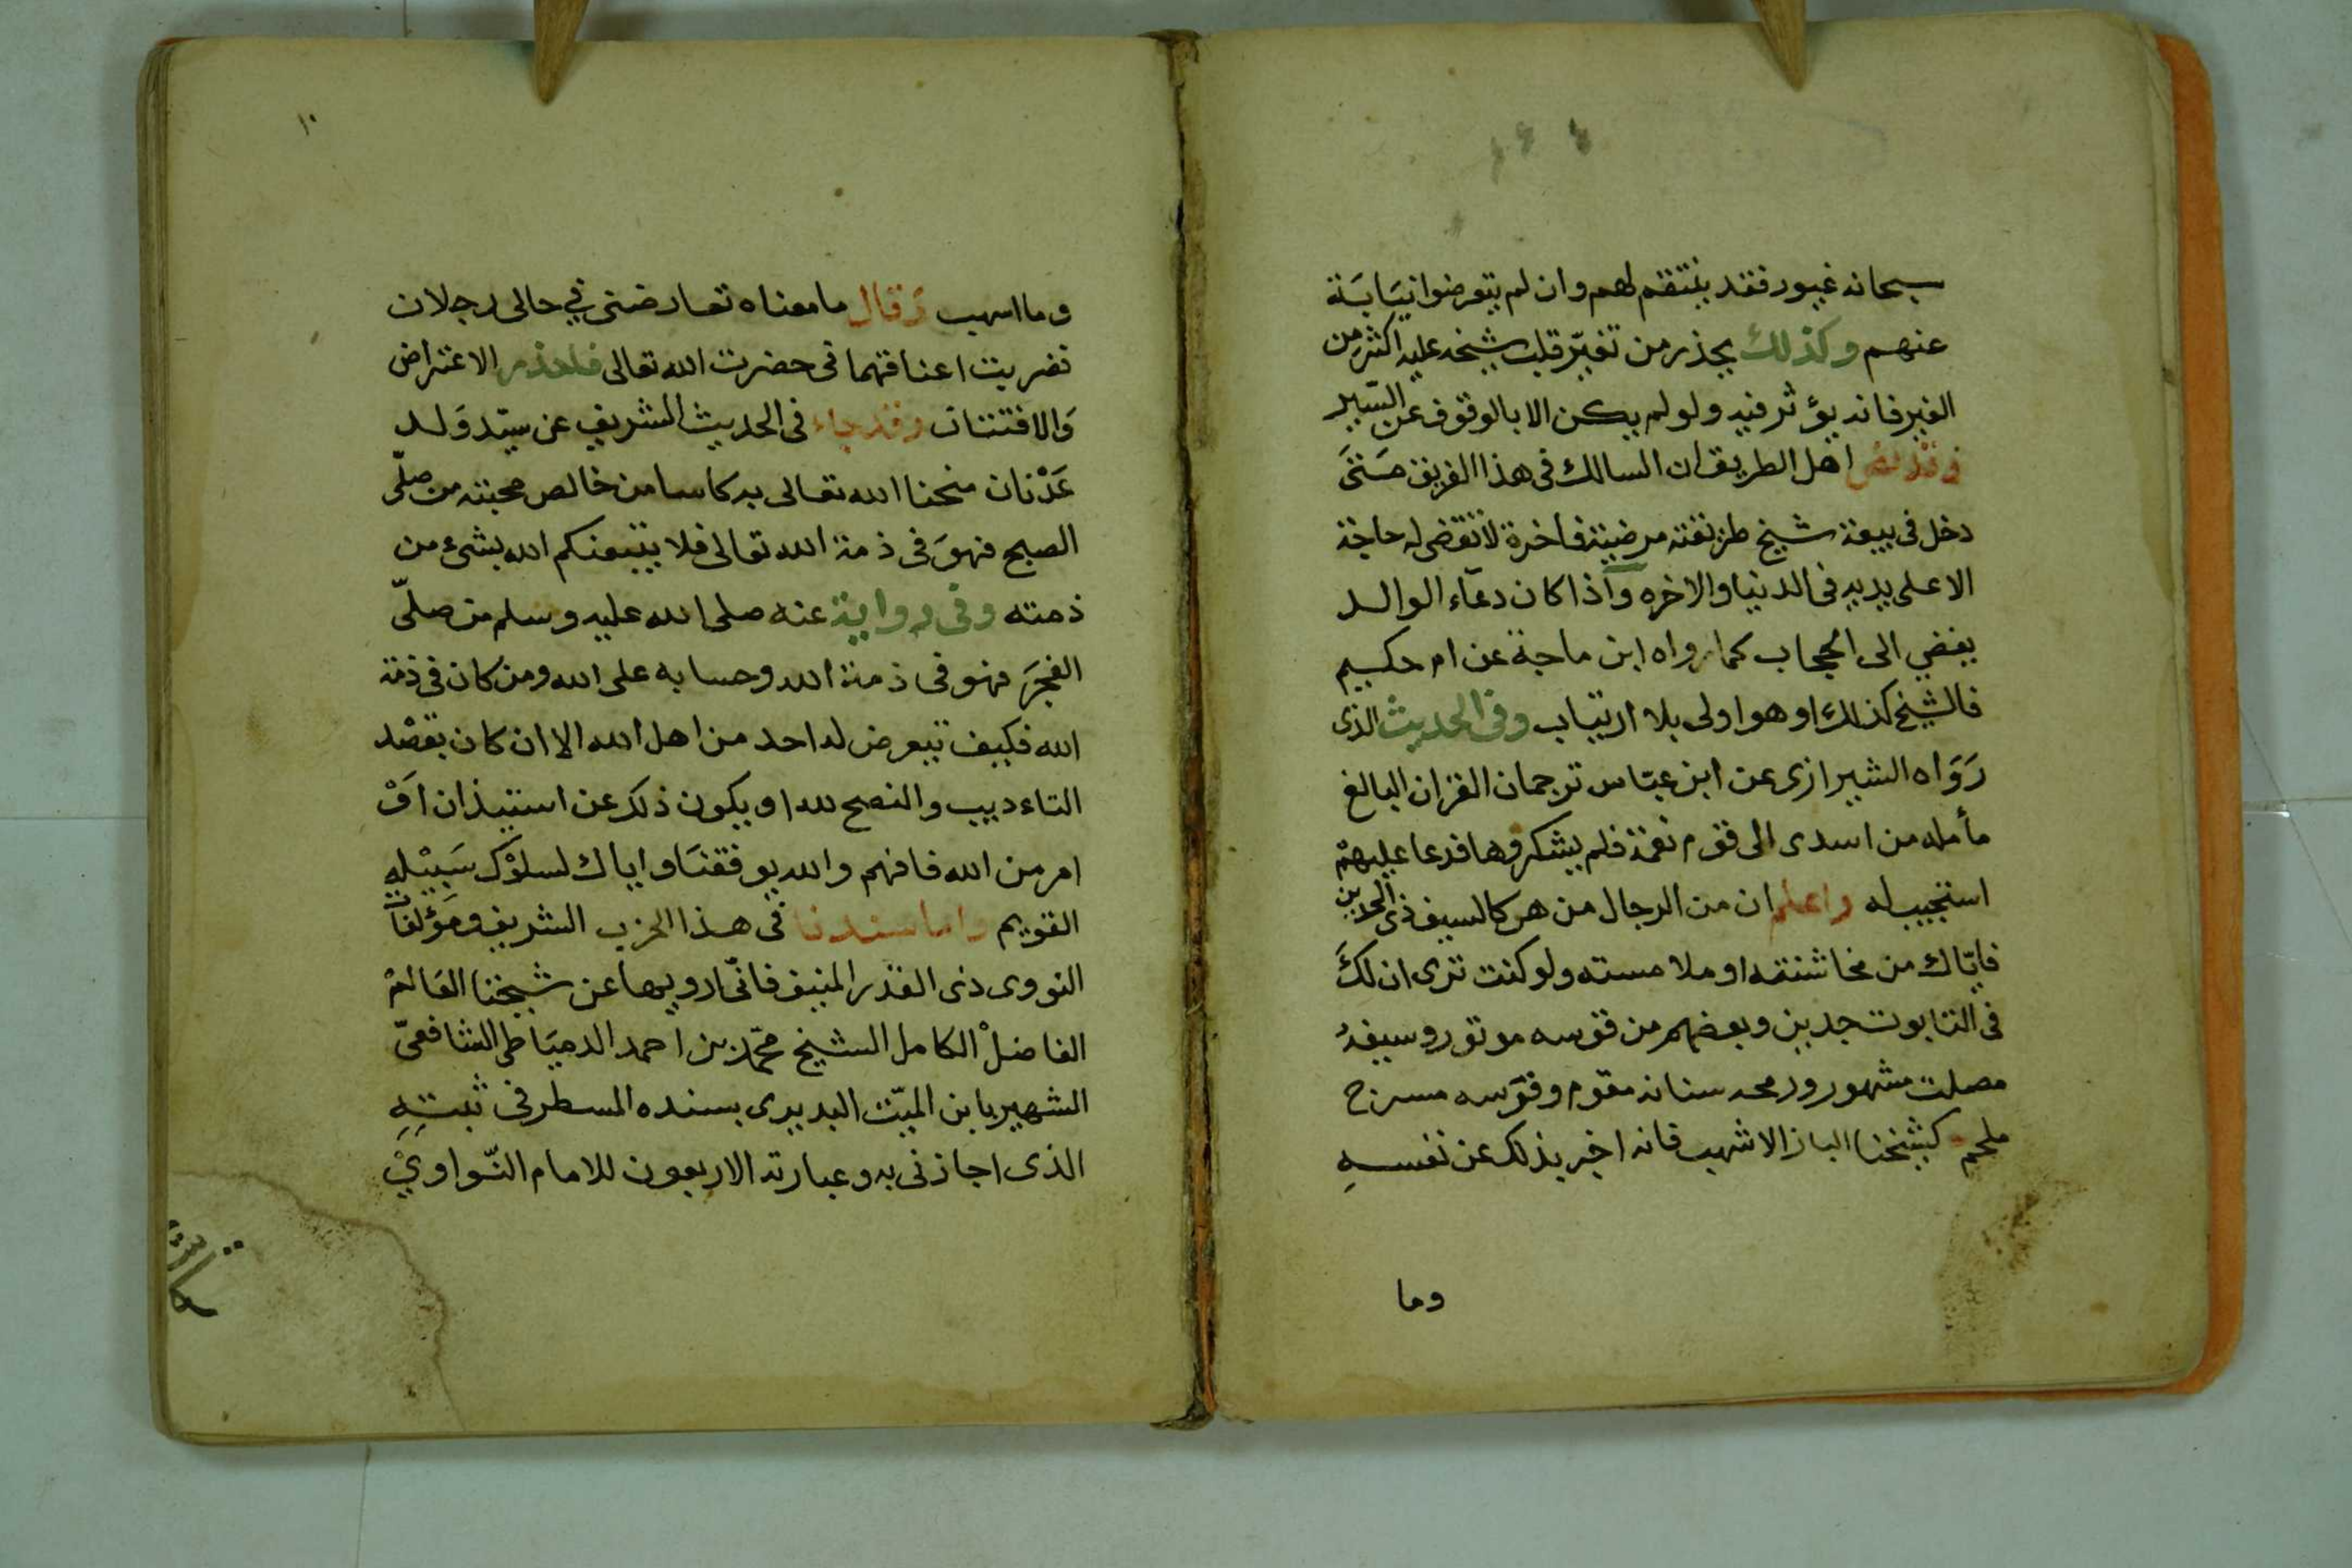 سبحانه غيور فقد ينتقم لهم وان لم يتعرضوا نيابة
عنهم وكذلك يحذر من تغيّر قلب شيخه عليه اكثر من
الغير فانه يؤثر فيه ولو لم يكن الا بالوقوف عن السّير
اهل الطريق ان السالك فى هذا الفريق متى
دخل فى بيعة شيخ طريقته مرضية فاخرة لا تقضى له حاجة
الا على يديه فى الدنيا والاخره واذا كان دعآء الوالد
يفضي الى الحجاب كما رواه ابن ماجة عن ام حكيم
فالشيخ كذلك او هو اولى بلا ارتياب وفى الحديث الذى
رَوَاه الشيرازى عن ابن عبّاس ترجمان القران البالغ
مأمله من اسدى الى قوم نعمة فلم يشكروها فدعا عليهمْ
استجيب له واعلم ان من الرجال من هو كالسيف ذى الحدين
فايّاك من مخاشنته او ملامسته ولو كنت ترى ان لكَ
فى التابوت جدين وبعضهم من قوسه موتور وسيفه
مصلت مشهور ورمحه سنانه مقوم وفرسه مسرج
ملجم كشيخنا الباز الاشهب فانه اخبر بذلك عن نفسهِ
وما
١٠
وما اسهب وقال ما معناه تعارضنى في حالى رجلان
فضربت اعناقهما فى حضرت الله تعالى فلحذر الاعتراض
وَالافتتان وقد جاء فى الحديث الشريف عن سيّد وَلد
عَدْنان منحنا الله تعالى به كاسا من خالص محبته من صلّى
الصبح فهوَ فى ذمة الله تعالى فلا يتبعنكم الله بشئ من
ذمته وفى رواية عنه صلى الله عليه وسلم من صلّى
الفجرَ فهو فى ذمة الله وحسابه على الله ومن كان فى ذمة
الله فكيف تيعرض له احد من اهل الله الا ان كان بقصْد
التاءديب والنصح لله او يكون ذلك عن استيذان اَوْ
امر من الله فافهم والله يوفقنَا واياك لسلوْك سَبيْلهِ
القويم واما سندنا فى هذا الحزب الشريف ومَؤلفات
النووى ذى القدر المنيف فانّى ارويها عن شيخنا العَالمْ
الفاضلْ الكامل الشيخ محمّد بن احمد الدميَاطى الشافعىّ
الشهير بابن الميّت البديرى بسنده المسطر فى ثبتهِ
الذى اجازنى به وعبارته الاربعون للامام النّواويْ